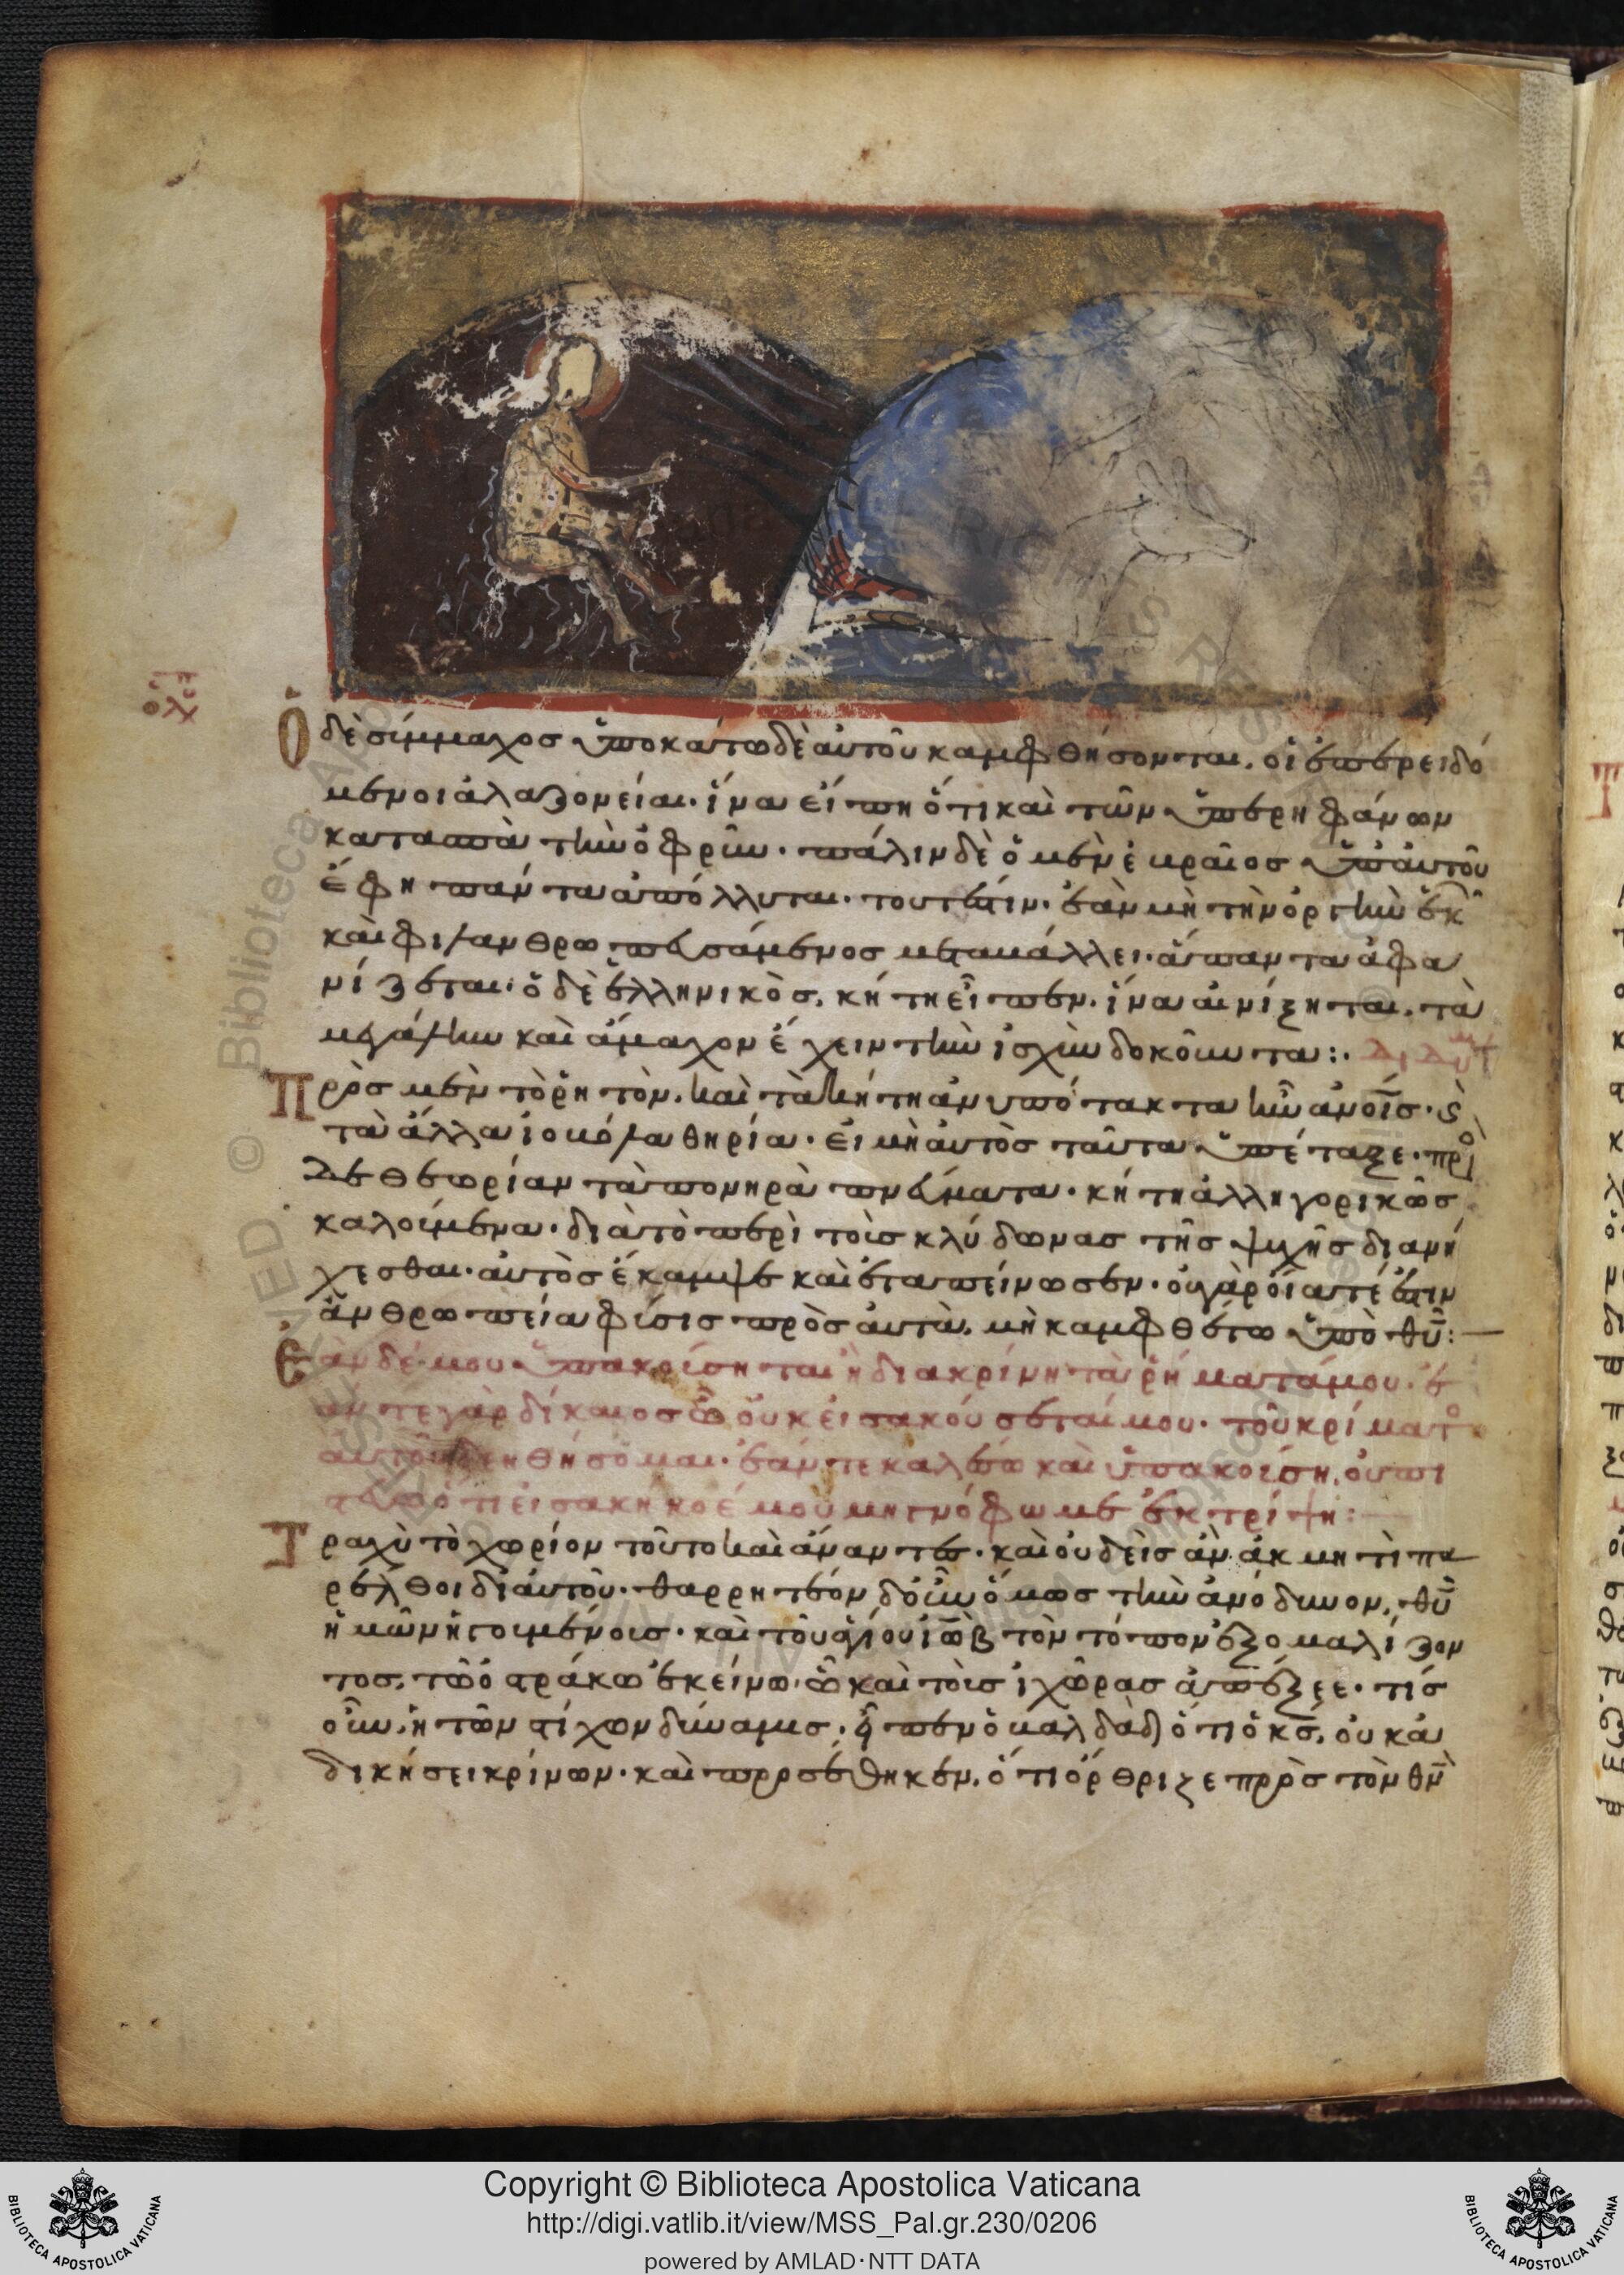 Ὁ δὲ σύμμαχοσ ὑποκάτω δὲ αὐτοῦ καμφθήσονται, οἱ ἐπερειδό
μενοι ἀλαζονείαι· ἵνα εἴπη ὅτι καὶ τῶν ὑπερηφάνων
κατασπᾶ τὴν ὀφρῦν· πάλιν δὲ ὁ μὲν ἑβραῖοσ ὑπ' αὐτοῦ
ἔφη πάντα ἀπόλλυται· τουτέστιν· ἐὰν μὴ τὴν ὀργὴν ἐκ
καὶ φιλανθρωπευσάμενοσ μεταβάλλει· ἅπαντα ἀφα
νίζεται· ὁ δὲ ἑλληνικὸσ, κήτη εἶπεν· ἵνα αἰνίξηται, τὰ
μεγάλην καὶ ἄμαχον ἔχειν τὴν ἰσχὺν δοκοῦντα:·
Πρὸσ μὲν τὸ ῥητὸν, καὶ τὰ κήτη ἀνυπότακτα ἦν ἀνοις·
τὰ ἄλλα ἰοβόλα θηρία· εἰ μὴ αὐτὸσ ταῦτα ὑπέταξε· πρ
δὲ θεωρίαν τὰ πονηρὰ πνεύματα· κήτη ἀλληγορικῶσ
καλούμενα· διὰ τὸ περὶ τοὺσ κλύδωνασ τῆσ ψυχῆσ διανή
χεσθαι· αὐτὸσ ἔκαμψε καὶ ἐταπείνωσεν· οὐ γὰρ οἵα τέ ἐστιν
ἀνθρωπεία φύσισ πρὸσ αὐτὰ, μὴ καμφθέντα ὑπὸ θῦ:—
Ἐὰν δέ μου ὑπακούσηται ἢ διακρίνη τὰ ῥήματά μου· ἐ
άν τε γὰρ δίκαιοσ ὦ οὐκ εἰσακούσεταί μου· τοῦ κρίματο
αὐτοῦ δεηθήσομαι· ἐάν τε καλέσω καὶ ὑπακούση, οὐ πι
στεύω ὅτι εἰσακήκοέ μου μὴ γνόφω με ἐκτρίψη:—
Τραχὺ τὸ χωρίον τοῦτο καὶ ἄναντες· καὶ οὐδεὶσ ἂν ἀκμητὶ πα
ρέλθοι δι' αὐτοῦ· θαρρητέον δ' οὖν ὅμωσ τὴν ἄνοδον, θῦ
ἡμῶν ἡγουμένοισ· καὶ τοῦ ἁγίου ἰὼβ τὸν τόπον ἐξομαλίζον
τοσ, τῶ ὀστράκω ἐκείνω· ὧ καὶ τοὺσ ἰχῶρασ ἀπέξεε· τίσ
οὖν, ἡ τῶν στίχων δύναμισ· εἶπεν ὁ βαλδὰδ ὅτι ὁ κς, οὐκ ἀ
δικήσει κρίνων· καὶ προσέθηκεν, ὅτι ὄρθριζε πρὸσ τὸν θν
Copyright © Biblioteca Apostolica Vaticana
http://digi.vatlib.it/view/MSS_Pal.gr.230/0206
powered by AMLAD·NTT DATA
BIBLIOTECA APOSTOLICA VATICANA
BIBLIOTECA APOSTOLICA VATICANA